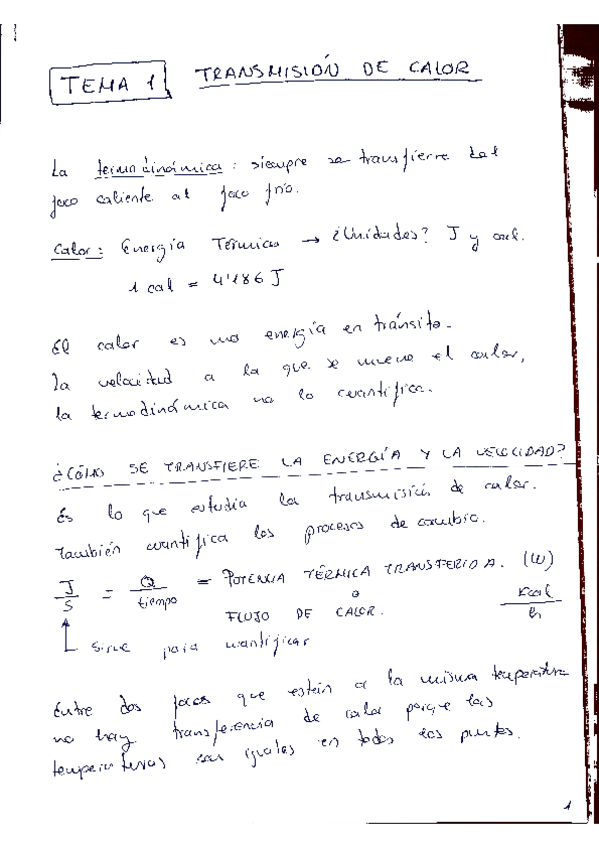 TEMA 1 TRANSMISIÓN DE CALOR
La termodinámica: siempre se transfiere del
foco caliente al foco frío.
Calor: Energía Térmica → ¿Unidades? J y cal.
1 cal = 4'186 J
El calor es una energía en tránsito.
La velocidad a la que se mueve el calor,
la termodinámica no lo cuantifica.
¿CÓMO SE TRANSFIERE LA ENERGÍA Y LA VELOCIDAD?
Es lo que estudia la transmisión de calor.
También cuantifica los procesos de cambio.
J/S = Q/tiempo = POTENCIA TÉRMICA TRANSFERIDA. (W)
o
FLUJO DE CALOR. Kcal/h
↑ sirve para cuantificar
Entre dos focos que estén a la misma temperatura
no hay transferencia de calor porque las
temperaturas son iguales en todos los puntos.
1